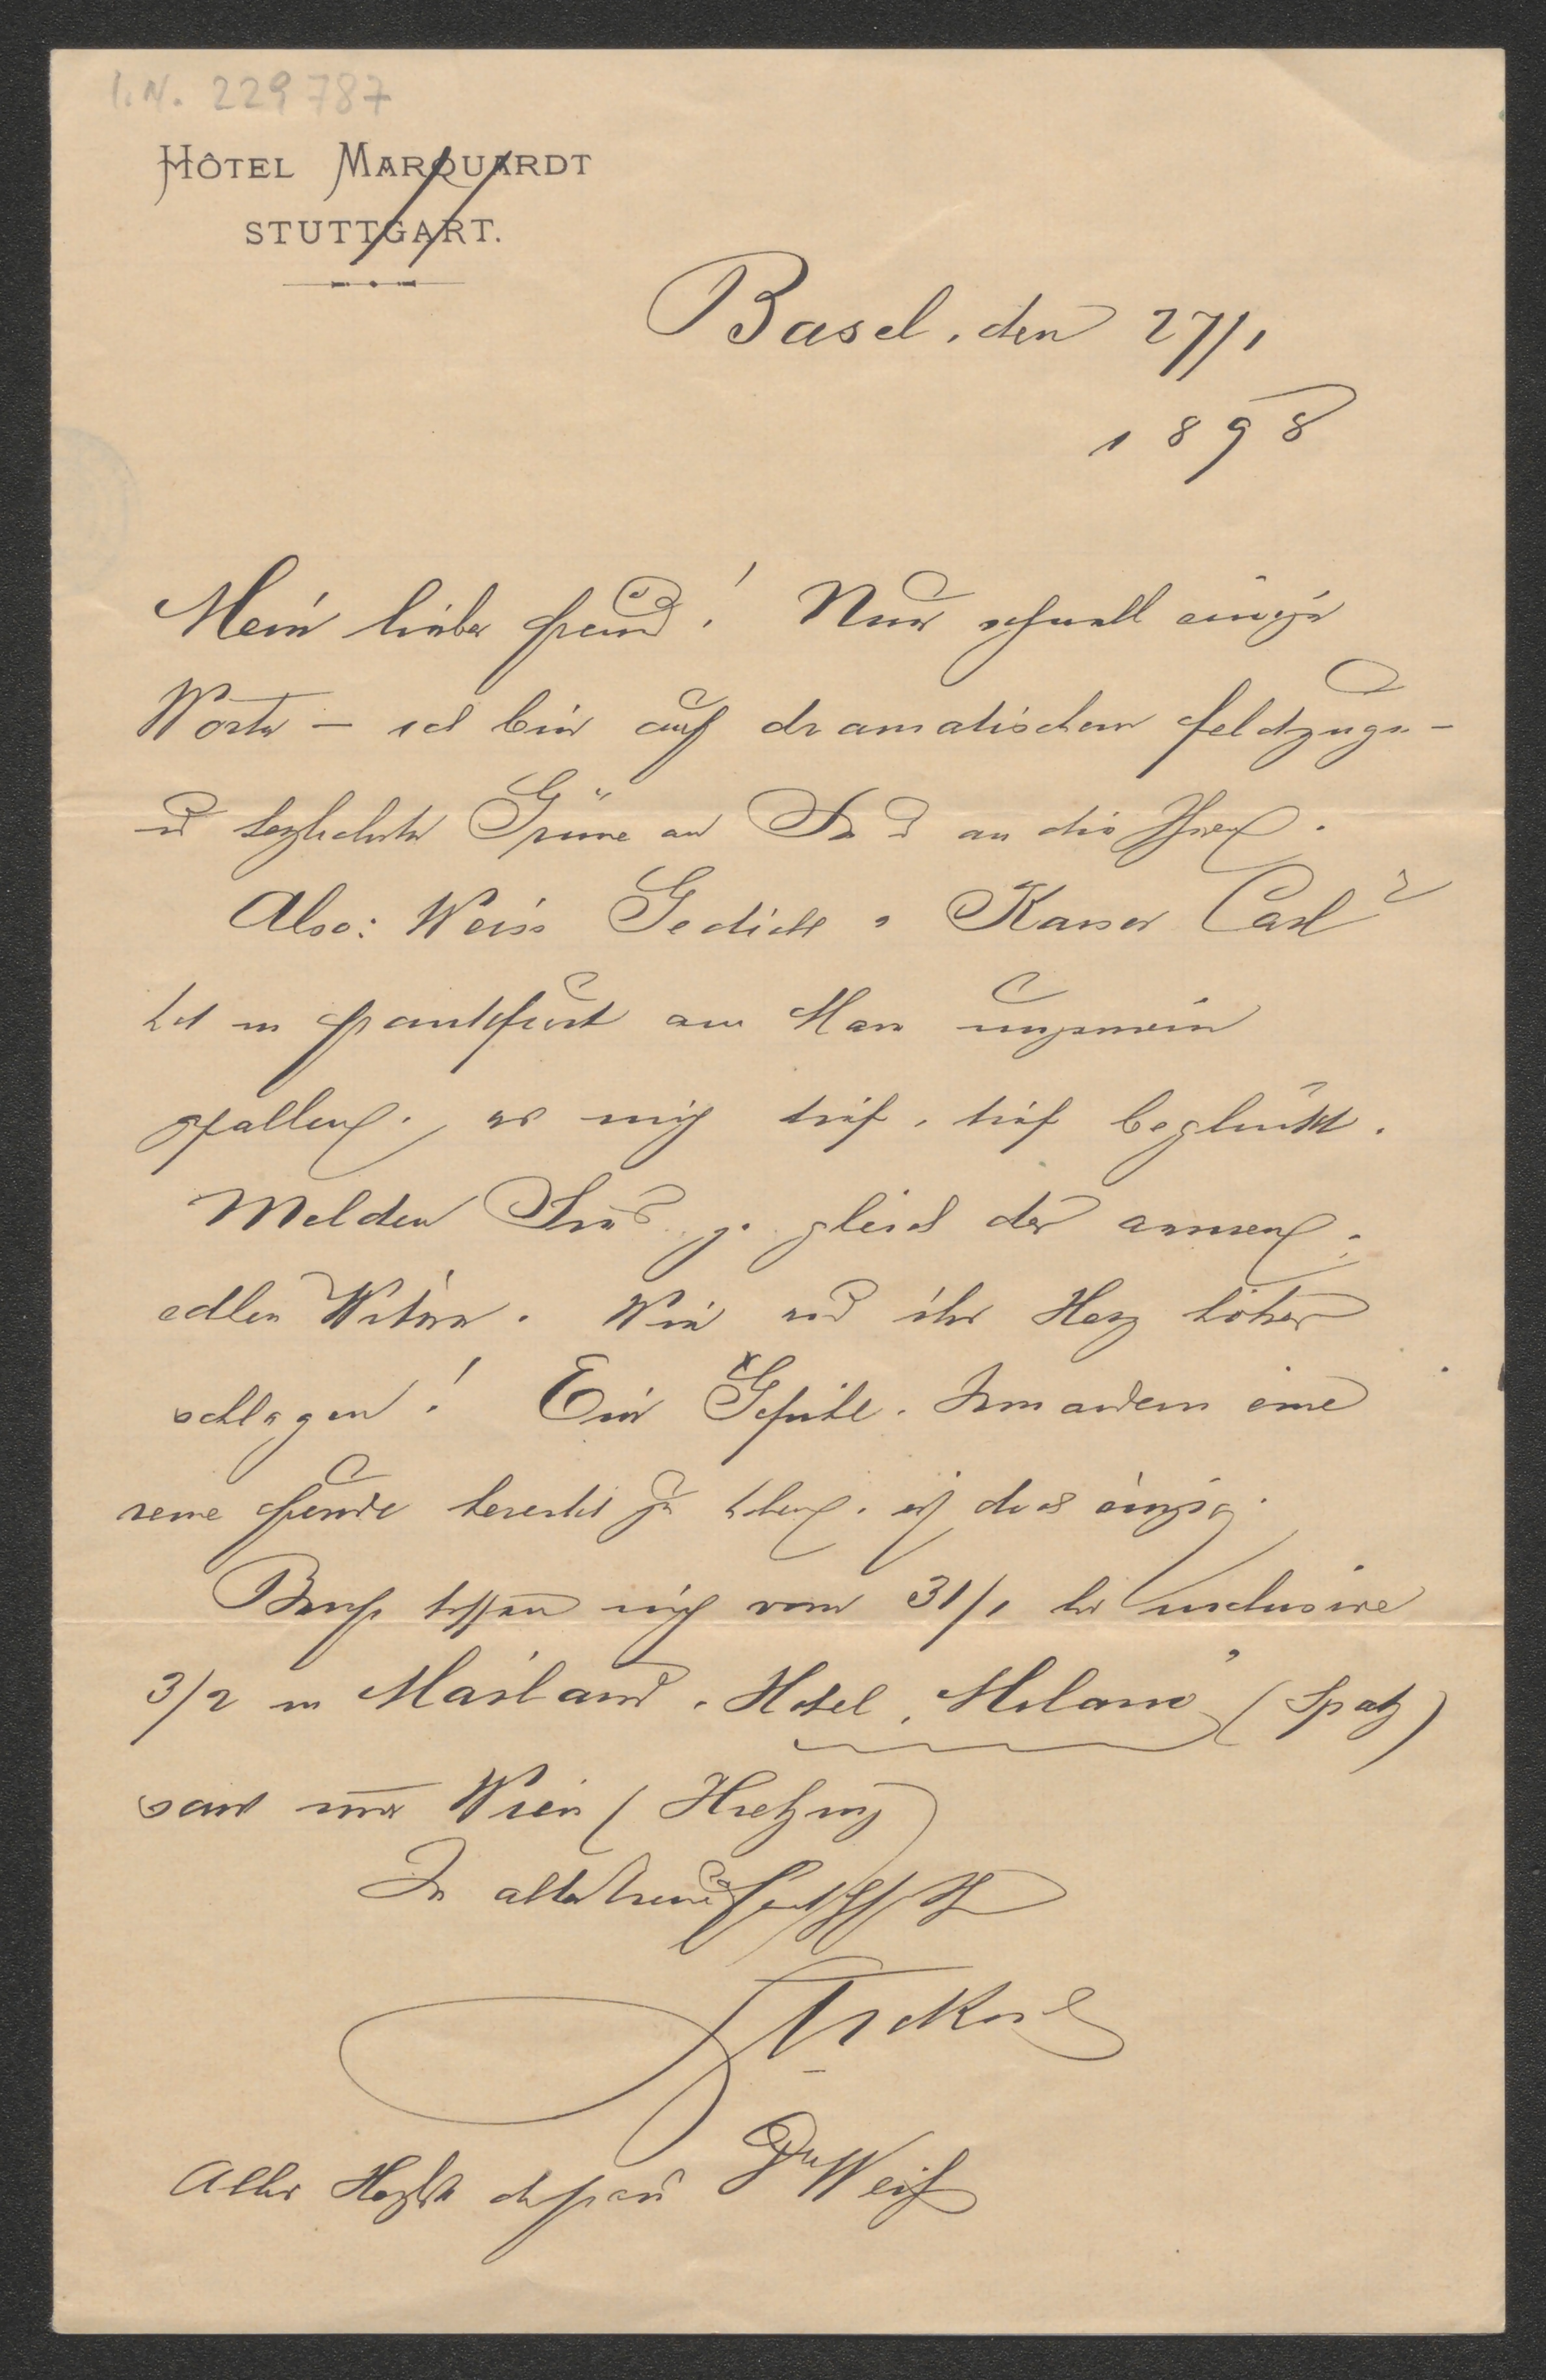 I. N. 229787
HÔTEL MARQUARDT
STUTTGART.
Basel, den 27/1
1898
Mein lieber Freund! Nur schnell einige
Worte – ich bin auf dramatischem Feldzuge –
u herzlichste Grüsse an Sie u an die Ihren.
Also: Weiss Gedicht „Kaiser Carl"
hat in Frankfurt am Main ungemein
gefallen, was mich tief, tief beglückt.
Melden Sie's gleich der armen,
edlen Witwe. Wie wird ihr Herz höher
schlagen! Ein Gefühl, Jemandem eine
reine Freude bereitet zu haben, ist doch einzig.
Briefe treffen mich vom 31/1 bis inclusive
3/2 in Mailand, Hotel „Milano" (Spatz)
dann nur Wien (Hietzing)
In alter Freundschaft Ihr
Aller Herzlichste der Frau Dr Weiß